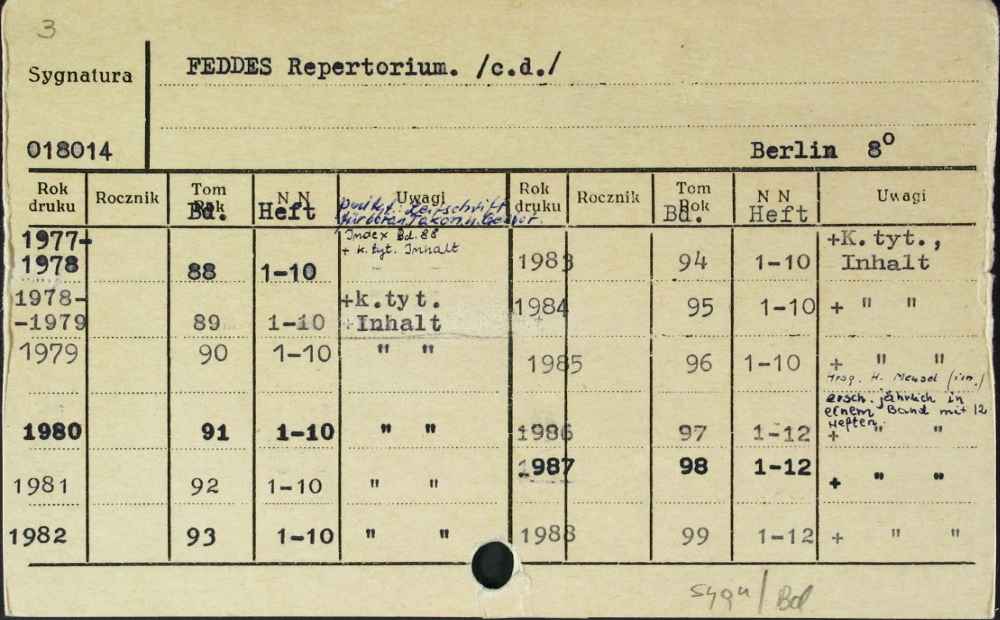 3
Sygnatura
FEDDES Repertorium. /c.d./
018014
Berlin 8°
Rok druku Rocznik Tom Rok Bd. NN Heft Uwagi Rok druku Rocznik Tom Rok Bd. NN Heft Uwagi
Zeitschrift
für
1977-
1978 88 1-10 Index Bd. 88
+ k. tyt. Inhalt
1978-
-1979 89 1-10 +k.tyt.
+Inhalt
1979 90 1-10 " "
1980 91 1-10 " "
1981 92 1-10 " "
1982 93 1-10 " "
1983 94 1-10 +K.tyt.,
Inhalt
1984 95 1-10 + " "
1985 96 1-10 + " "
Hrsg. H. Meusel
ersch. jährlich in
einem Band mit 12
Heften.
1986 97 1-12 + " "
1987 98 1-12 + " "
1988 99 1-12 + " "
sygn/Bd